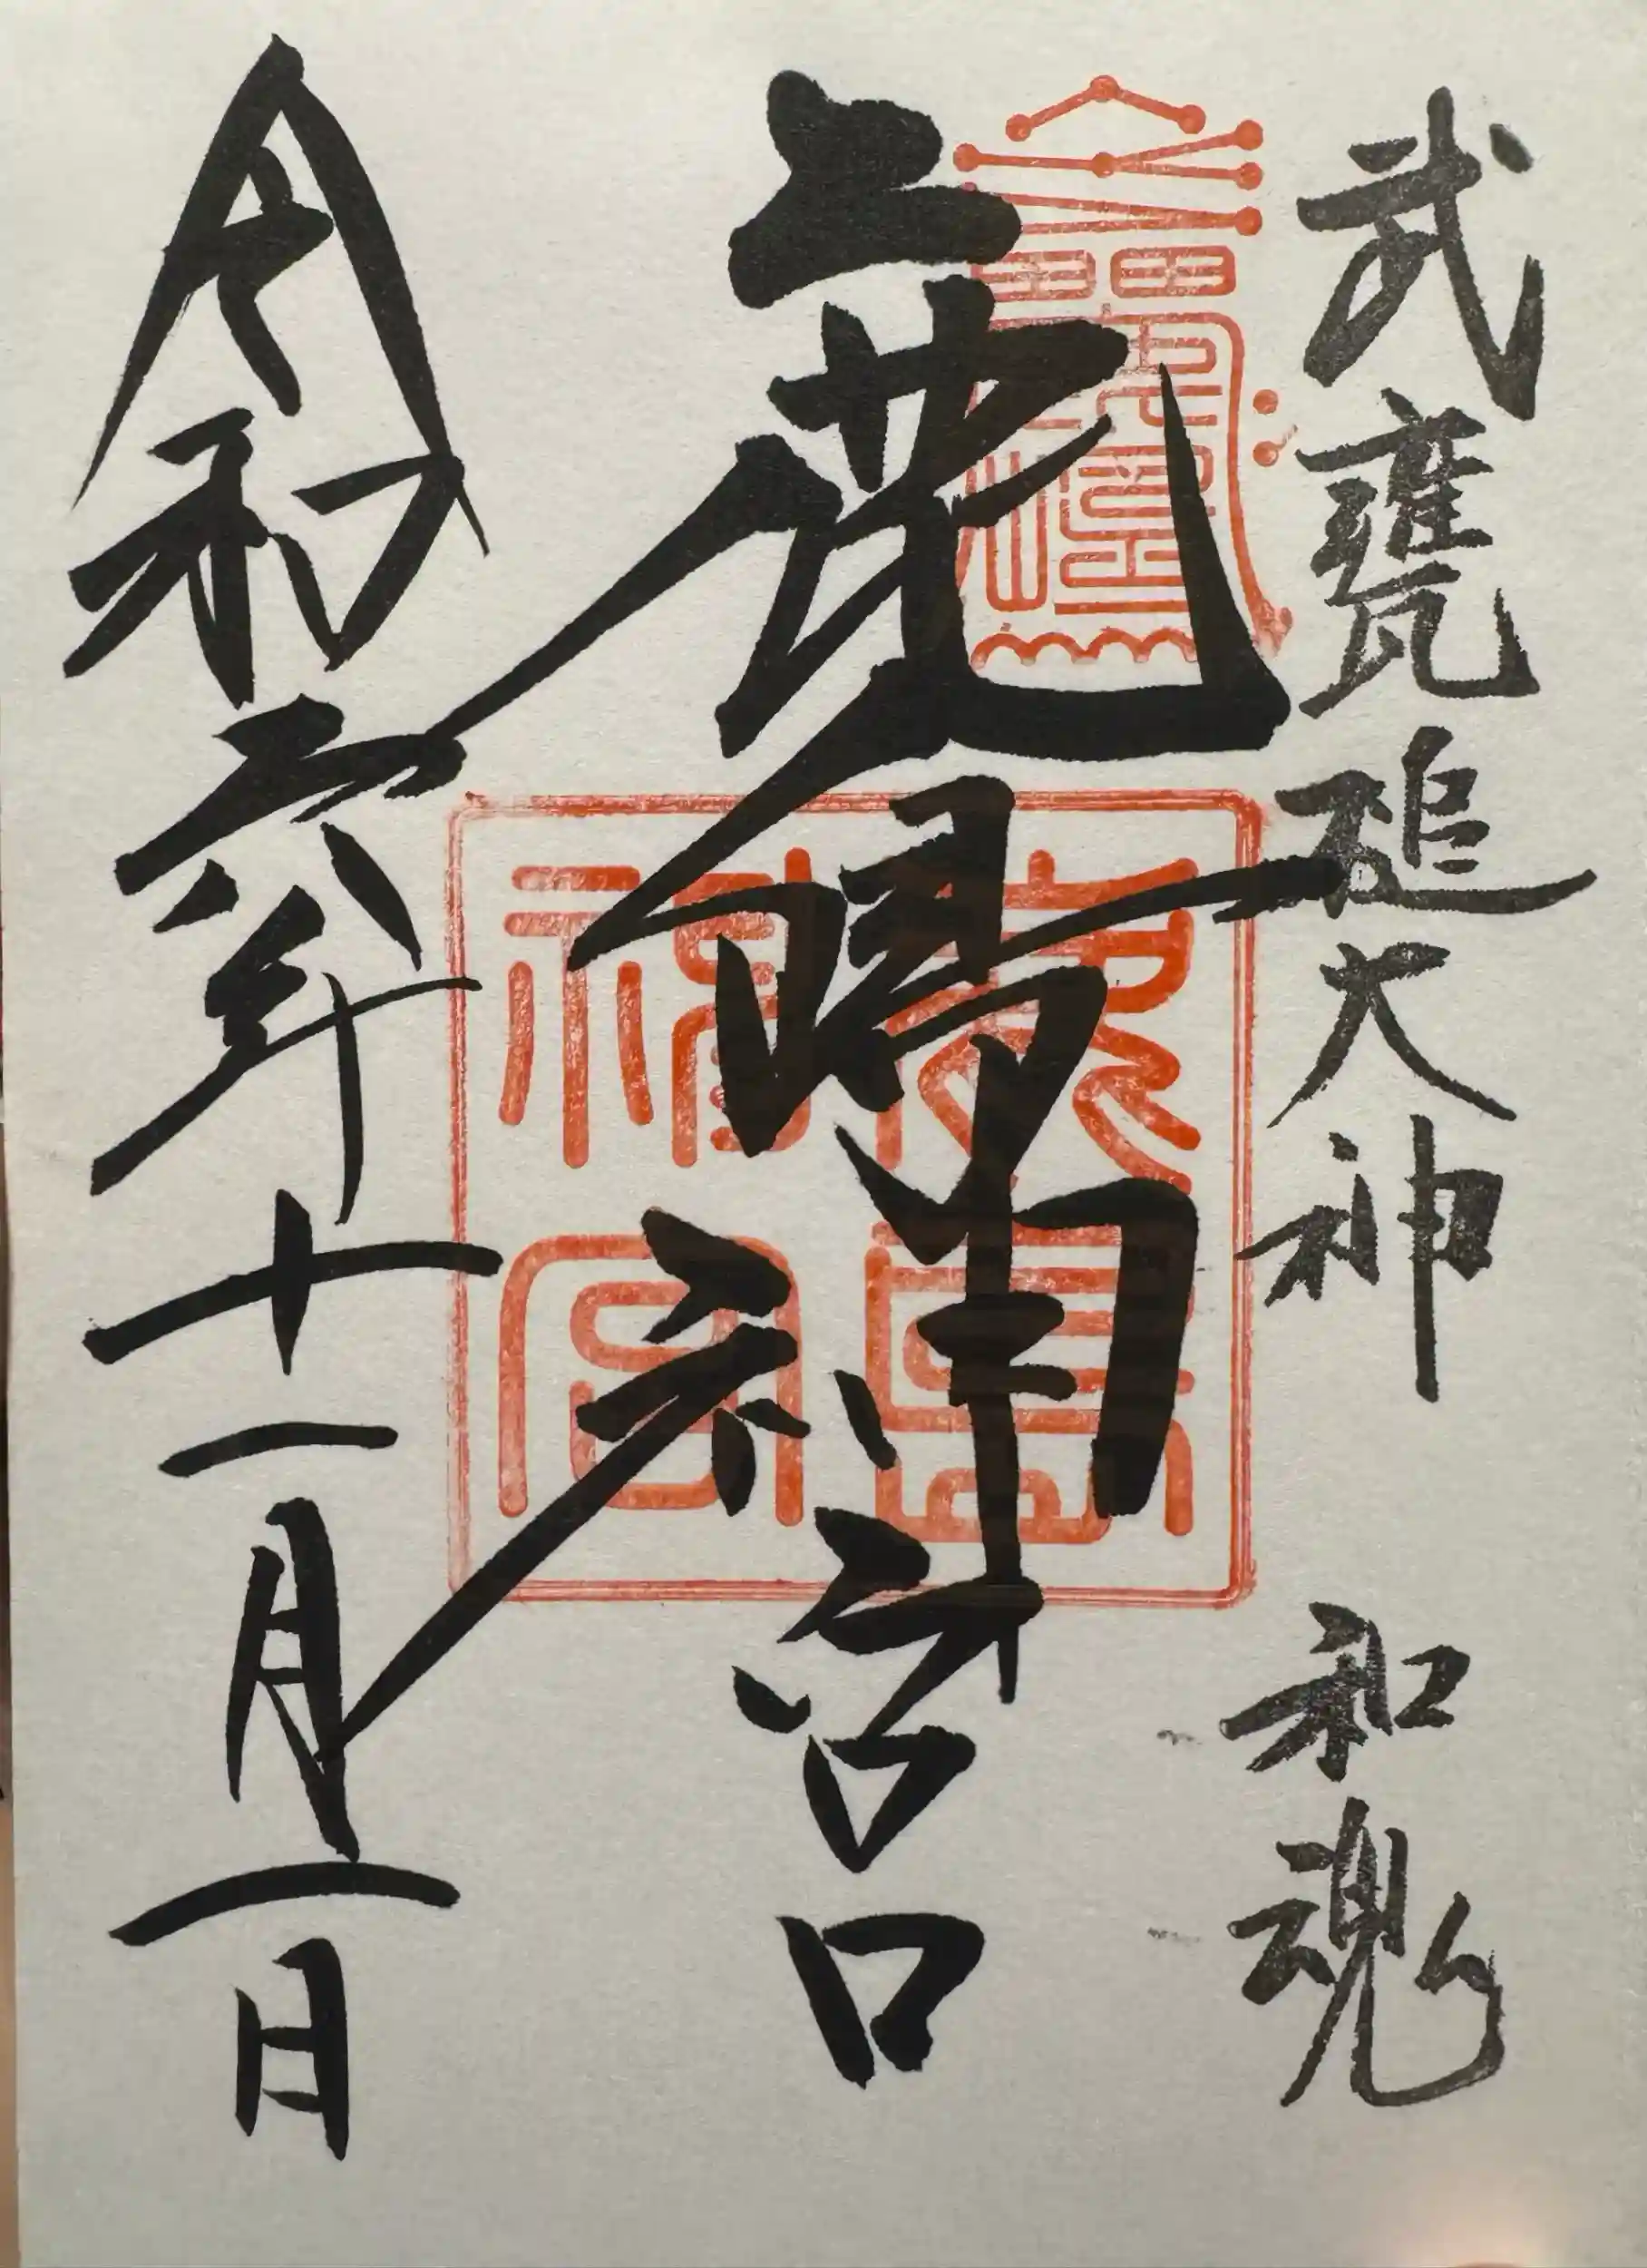 武甕槌大神 和魂
鹿嶋神宮
令和六年十一月一日